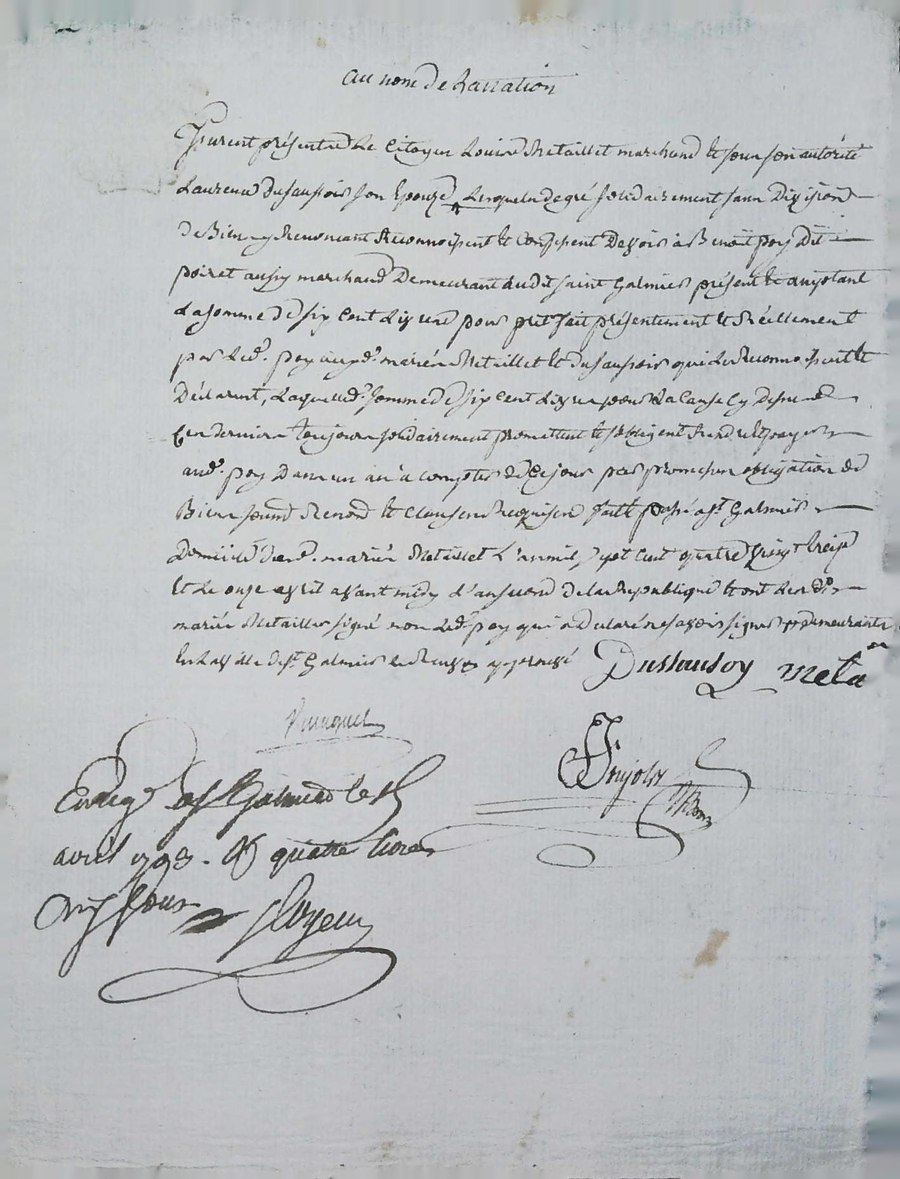 au nom de la nation
furent présent le Citoyen Louis Metaillet marchand et sous son autorité
Laurence Dusaussois son Epouze, Lesquels de gré solidairement sans Division
de Biens y Renoncant Reconnoissent et Confessent Devoir à Benoit poy dit
poiret aussy marchand Demeurant audit Saint Galmier présent et acceptant
La somme de six Cent Livres pour prit fait présentement et Réellement
par Led. poy auxd. mariés Metaillet et Dusaussois qui Le Reconnoissent et
Déclarent, Laquelle somme de six Cent Livres pour La Cause Cy Dessus
Ces derniers toujours solidairement promettent et s'obligent Rendre et payer
aud. poy Dans un an à compter de Ce jour par promesses obligation de
Biens soumis Renon et Clauses Requises fait et passé a St. Galmier
Domicile desd. mariés Metaillet L'an mil sept Cent quatre vingt treize
Et Le onze avril avant midy L'an second de la Republique et ont Lesds.
mariés Metaillet signé non Led. poy qui a Déclaré ne savoir signer
En La ville de St. Galmier approuvé Dussausoy meta
Pujolas
Enreg. a St Galmier le
avril 1793. R quatre livres
sous